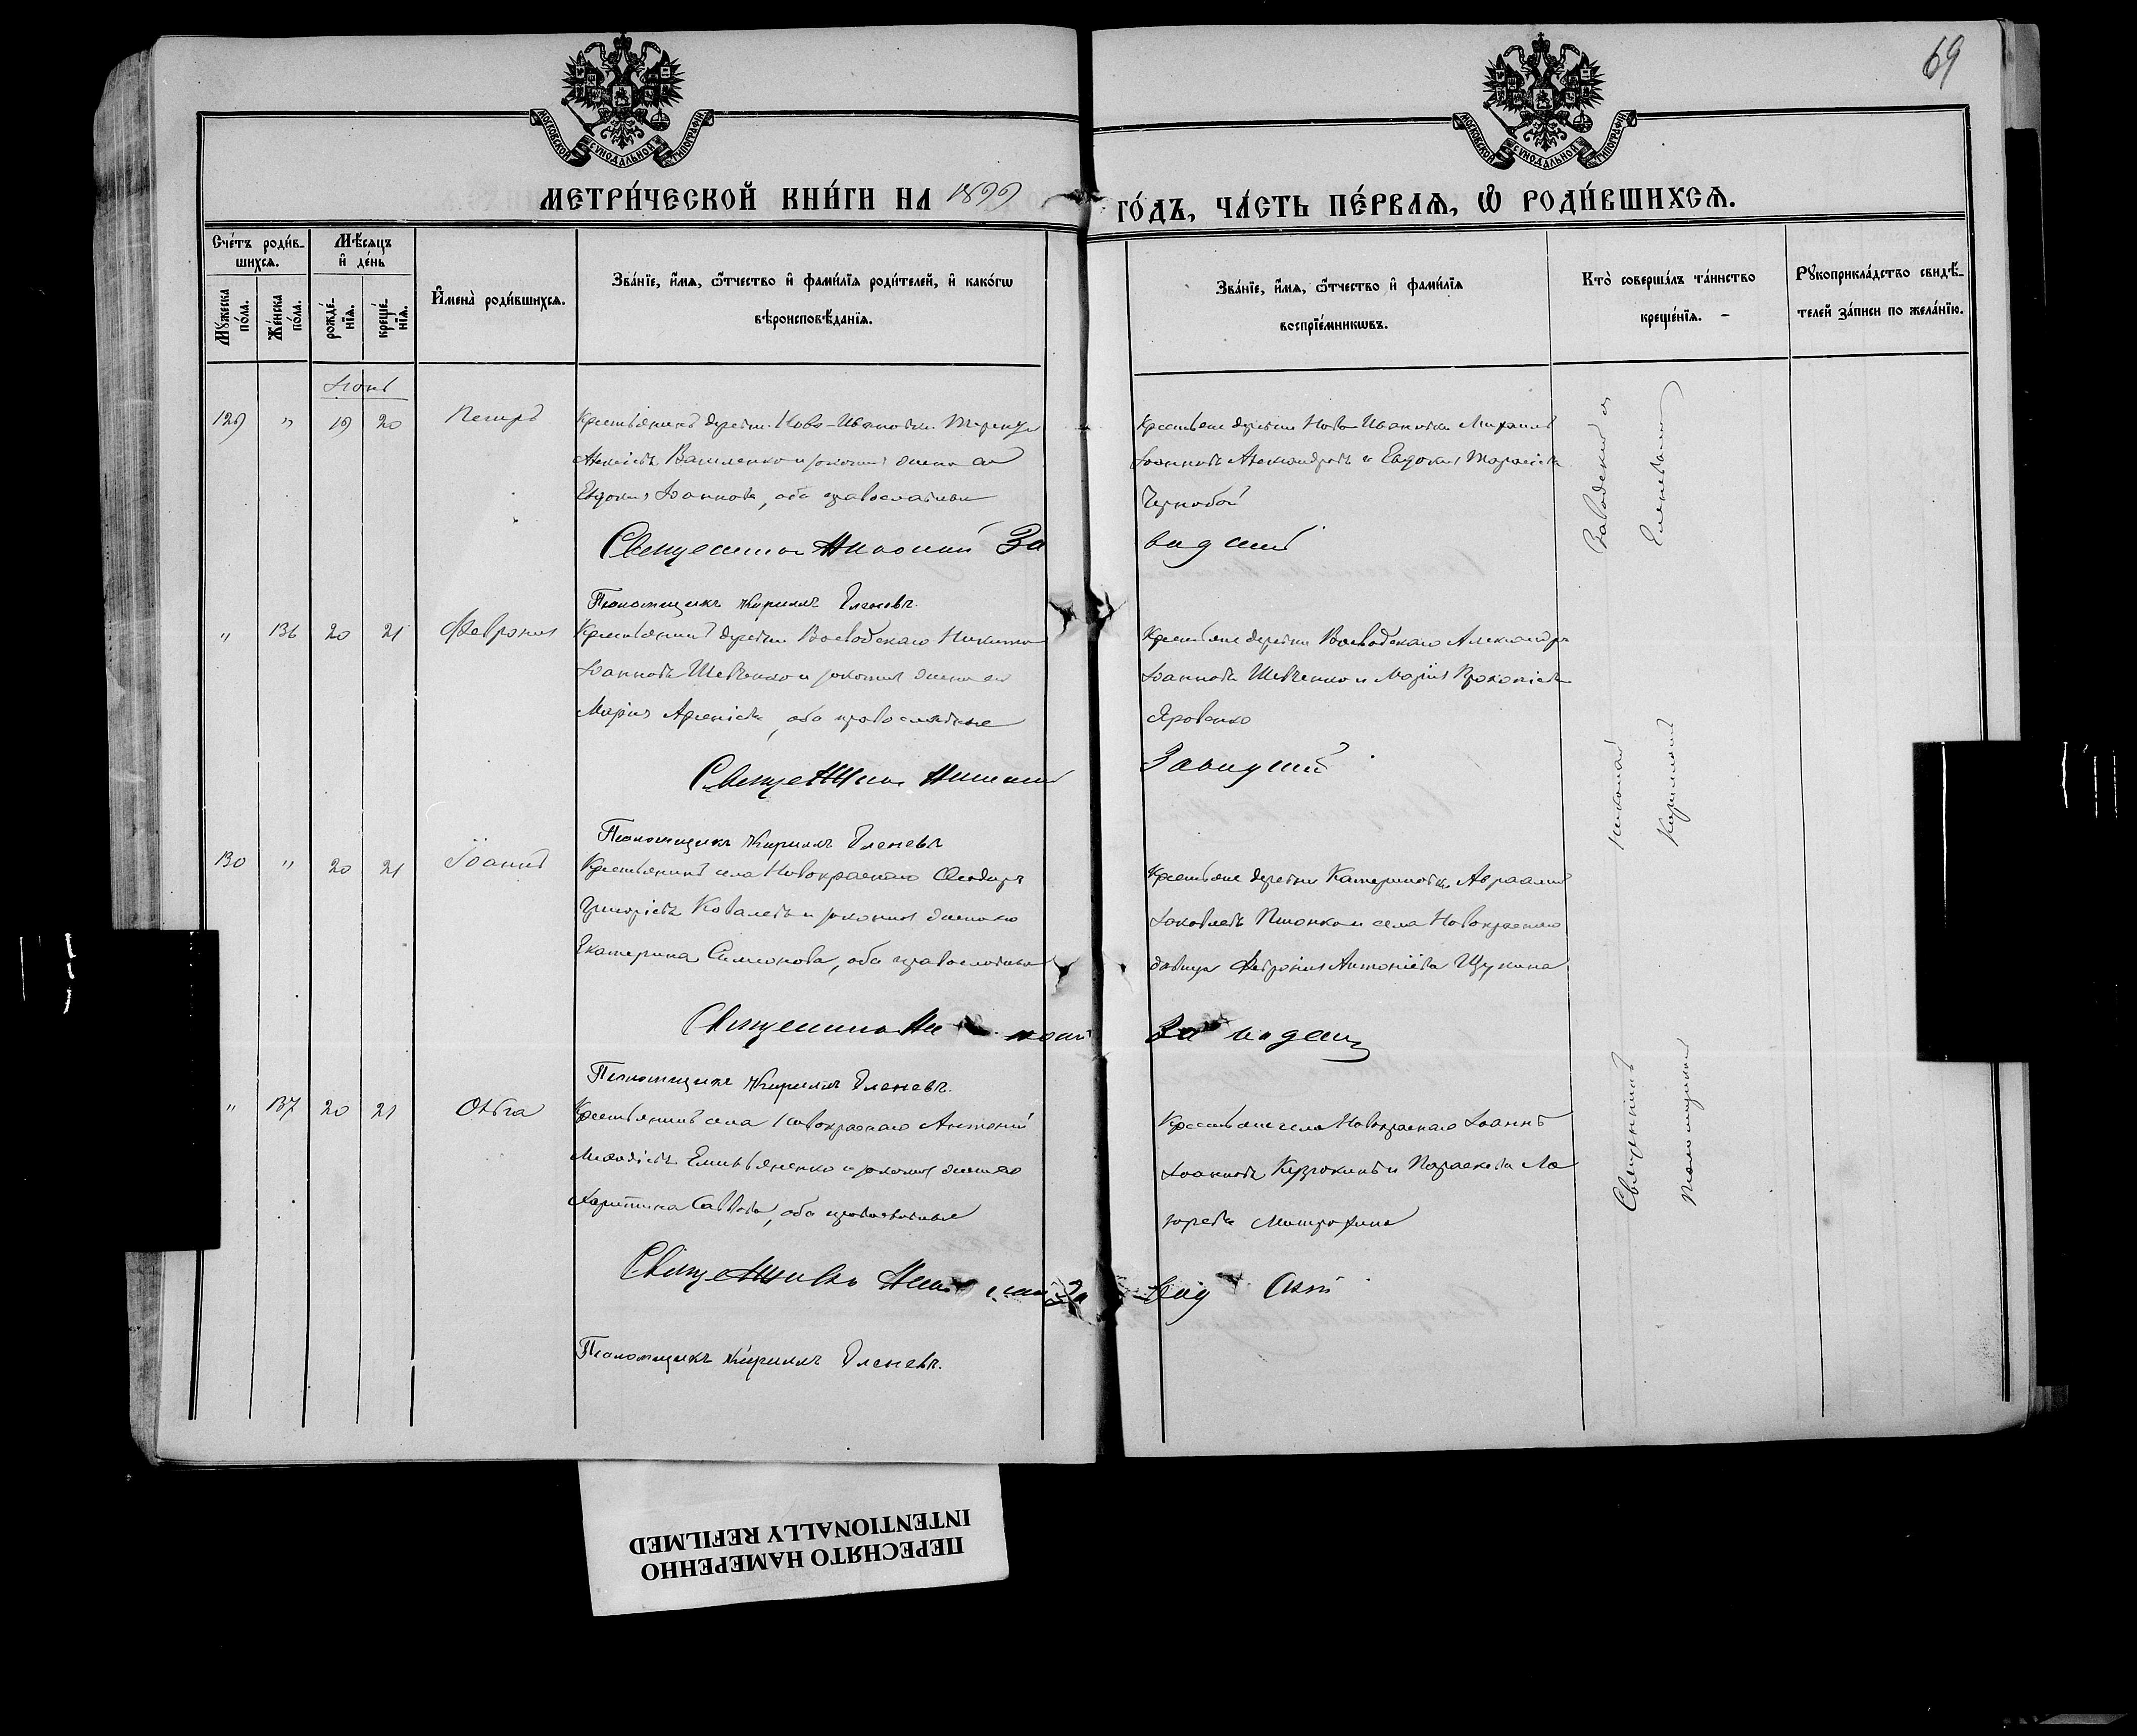 69
МОСКОВСКОЙ СУНОДАЛЬНОЙ ТИПОГРАФІИ
МОСКОВСКОЙ СУНОДАЛЬНОЙ ТИПОГРАФІИ
МЕТРИ́ЧЕСКОЙ КНИ́ГИ НА 1899
ГО́ДЪ, ЧА́СТЬ ПЕ́РВАѦ, Ѡ РОДИ́ВШИХСѦ.
Сче́тъ роди́в-
шихсѧ.
Мꙋ́жеска по́ла.
Же́нска по́ла.
Мѣ́сѧцъ
и҆ де́нь
рожде́-
нїѧ.
креще́-
нїѧ.
И҆мена̀ роди́вшихсѧ.
Зва́нїе, и҆́мѧ, ѻ҆́тчество и҆ фами́лїѧ роди́телей, и҆ како́гѡ
вѣроисповѣ́данїѧ.
Зва́нїе, и҆́мѧ, ѻ҆́тчество и҆ фами́лїѧ
воспрїе́мникѡвъ.
Кто̀ соверша́лъ та́инство
креще́нїѧ.
Рꙋкоприкла́дство свидѣ́-
телей за́писи по жела́нїю.
Іюнь
129 " 19 20 Петръ
Крестьянинъ деревни Ново-Ивановки
Василенко и законная жена его
Евдокия Іоаннова, оба православные
Крестьяне деревни Ново-Ивановки Михаилъ
Іоанновъ Александровъ и Евдокия Тарасіева
Чернобай
Священникъ Николай За
вадский
Псаломщикъ Кириллъ Еленевъ.
" 136 20 21 Феврония
Крестьянинъ деревни Воеводскаго Никита
Іоанновъ Шевченко и законная жена его
Мария Арсеніева, оба православные
Крестьяне деревни Воеводскаго Александръ
Іоанновъ Шевченко и Мария Прокопіева
Яровенко
Священникъ Николай
Завадский
Псаломщикъ Кириллъ Еленевъ
130 " 20 21 Іоаннъ
Крестьянинъ села Новокраснаго Ѳеодоръ
Григоріевъ Ковалевъ и законная жена его
Екатерина Симеонова, оба православные
Крестьяне деревни Катериновки Авраамъ
Іаковлевъ и села Новокраснаго
девица Феврония Антоніева Щукина
Священникъ Николай
Завадский
Псаломщикъ Кириллъ Еленевъ.
" 137 20 21 Ольга
Крестьянинъ села Новокраснаго Антоній
Меѳодіевъ Емельяненко и законная жена его
Харитина Саввова, оба православные
Крестьяне села Новокраснаго Іоаннъ
Іоанновъ и Параскева Ла
зарева Митрофана
Священникъ Николай За
вадский
Псаломщикъ Кириллъ Еленевъ.
Священникъ Николай Заводский и
Псаломщикъ Кириллъ Еленевъ
ПЕРЕСНЯТО НАМЕРЕННО
INTENTIONALLY REFILMED